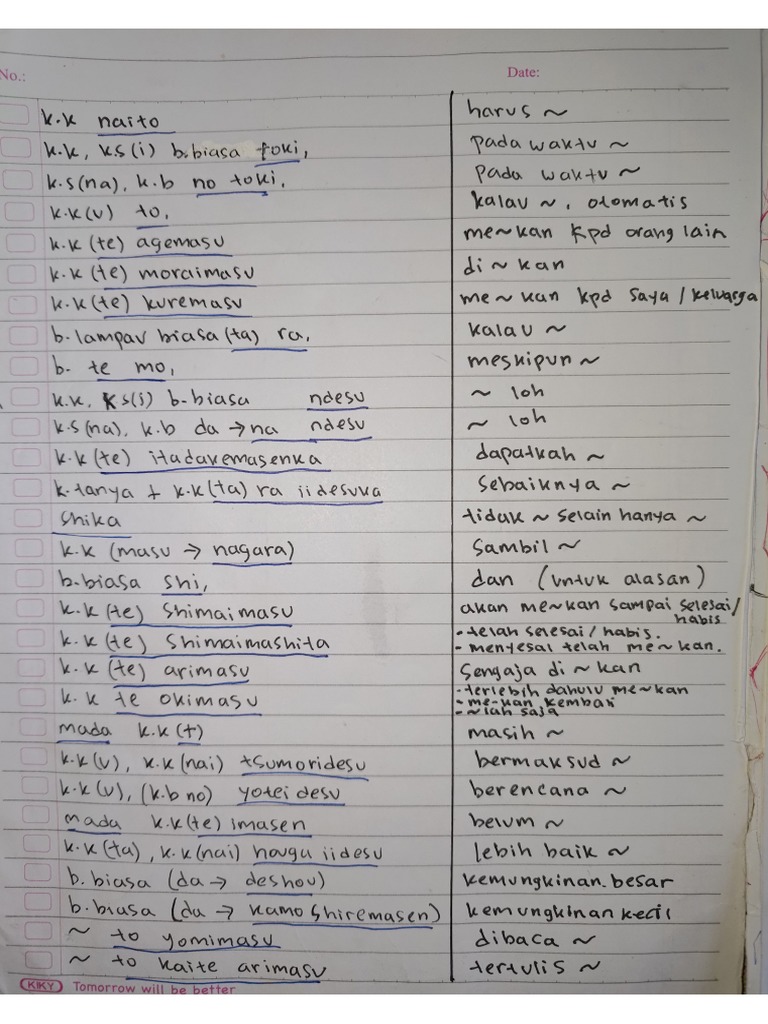 No.: Date:
k.k naito harus ~
k.k, ks(i) b.biasa toki, pada waktu ~
k.s(na), k.b no toki, pada waktu ~
k.k(u) to, kalau ~, otomatis
k.k(te) agemasu me~kan kpd orang lain
k.k(te) moraimasu di~kan
k.k(te) kuremasu me~kan kpd saya/keluarga
b.lampau biasa(ta) ra, kalau ~
b. te mo, meskipun ~
k.k, ks(i) b.biasa ndesu ~ loh
k.s(na), k.b da → na ndesu ~ loh
k.k(te) itadakemasenka dapatkah ~
k.tanya + k.k(ta) ra iidesuka sebaiknya ~
shika tidak ~ selain hanya ~
k.k (masu → nagara) sambil ~
b.biasa shi, dan (untuk alasan)
k.k(te) shimaimasu akan me~kan sampai selesai/
habis
k.k(te) shimaimashita - telah selesai/habis.
- menyesal telah me~kan.
k.k(te) arimasu sengaja di~kan
k.k te okimasu - terlebih dahulu me~kan
- me~kan kembali
- ~lah saja
mada k.k(t) masih ~
k.k(u), k.k(nai) tsumoridesu bermaksud ~
k.k(u), (k.b no) yotei desu berencana ~
mada k.k(te) imasen belum ~
k.k(ta), k.k(nai) houga iidesu lebih baik ~
b.biasa (da → deshou) kemungkinan besar
b.biasa (da → kamo shiremasen) kemungkinan kecil
~ to yomimasu dibaca ~
~ to kaite arimasu tertulis ~
KIKY Tomorrow will be better